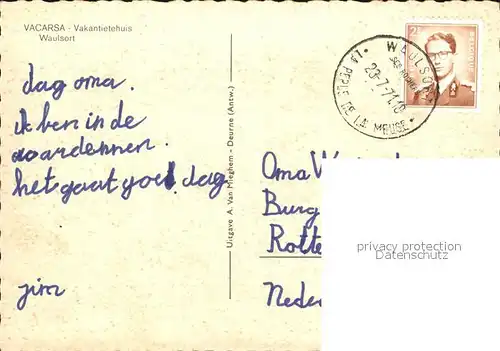 VACARSA - Vakantietehuis
Waulsort
dag oma.
ik ben in de
aardennen.
het gaat goed. dag
jim
Uitgave A. Van Mieghem - Deurne (Antw.)
WAULSORT
23-7-71-18
PERLE DE LA MEUSE
2F
Oma
Burg
Rotte
Neder
privacy protection
Datenschutz